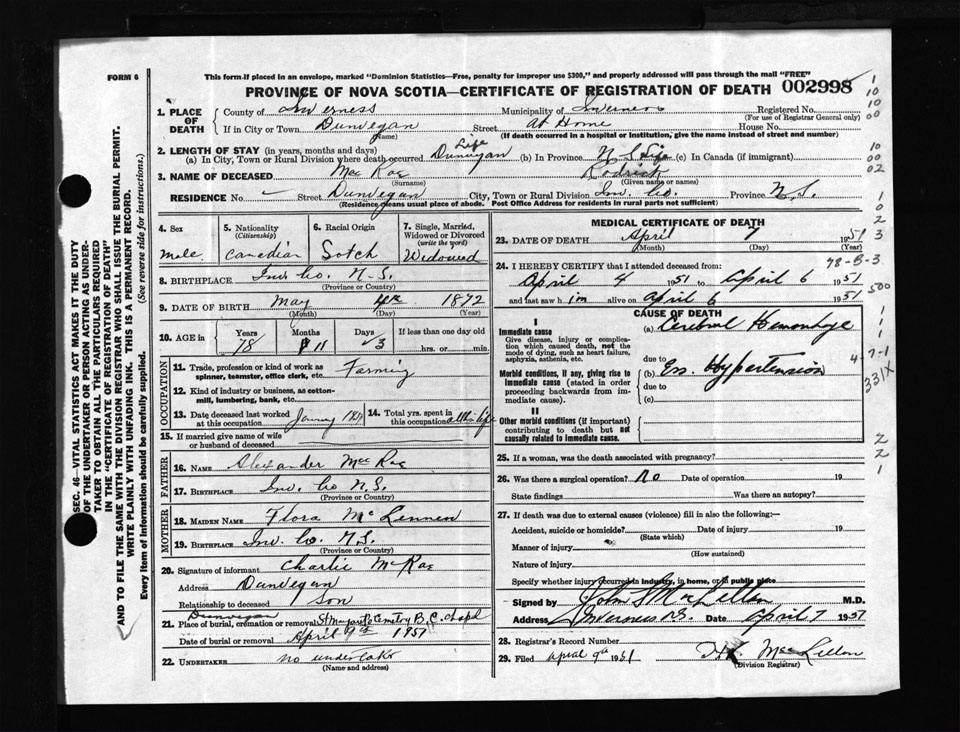 FORM 6
This form if placed in an envelope, marked "Dominion Statistics—Free, penalty for improper use $300," and properly addressed will pass through the mail "FREE"
PROVINCE OF NOVA SCOTIA—CERTIFICATE OF REGISTRATION OF DEATH 002998
1. PLACE OF DEATH
County of Inverness Municipality of Inverness Registered No.
(For use of Registrar General only)
If in City or Town Dunvegan Street At Home House No.
(Name) (If death occurred in a hospital or institution, give the name instead of street and number)
2. LENGTH OF STAY (in years, months and days)
(a) In City, Town or Rural Division where death occurred Dunvegan Life (b) In Province N S Life (c) In Canada (if immigrant)
3. NAME OF DECEASED Mac Rae Rodrick
(Surname) (Given name or names)
RESIDENCE No. Street Dunvegan City, Town or Rural Division Inv. Co. Province N.S.
(Residence means usual place of abode. Post Office Address for residents in rural parts not sufficient)
4. Sex male
5. Nationality (Citizenship) Canadian
6. Racial Origin Sotch
7. Single, Married, Widowed or Divorced (write the word) Widowed
8. BIRTHPLACE Inv. Co. N.S.
(Province or Country)
9. DATE OF BIRTH May 4th 1872
(Month) (Day) (Year)
10. AGE in Years 78 Months 11 Days 3 If less than one day old
hrs. or min.
OCCUPATION
11. Trade, profession or kind of work as spinner, teamster, office clerk, etc. Farming
12. Kind of industry or business, as cotton-mill, lumbering, bank, etc.
13. Date deceased last worked at this occupation
14. Total yrs. spent in this occupation all his life
15. If married give name of wife or husband of deceased
FATHER
16. NAME Alexander Mac Rae
17. BIRTHPLACE Inv. Co N.S.
(Province or Country)
MOTHER
18. MAIDEN NAME Flora McLennen
19. BIRTHPLACE Inv. Co. N.S.
(Province or Country)
20. Signature of informant Charlie McRae
Address Dunvegan
Relationship to deceased Son
Dunvegan
21. Place of burial, cremation or removal St Margarets Cemetry B. C. chapl
Date of burial or removal April 9th 1951
22. UNDERTAKER no undertaker
(Name and address)
MEDICAL CERTIFICATE OF DEATH
23. DATE OF DEATH April 7 1951
(Month) (Day) (Year)
24. I HEREBY CERTIFY that I attended deceased from: 98-B-3
April 4 1951 to April 6 1951
and last saw him alive on April 6 1951
CAUSE OF DEATH
I
Immediate cause (a) Cerebral Hemorrhage
Give disease, injury or complication which caused death, not the mode of dying, such as heart failure, asphyxia, asthenia, etc.
due to
Morbid conditions, if any, giving rise to immediate cause (stated in order proceeding backwards from immediate cause).
(b) Ess. Hypertension
due to
(c)
II
Other morbid conditions (if important) contributing to death but not causally related to immediate cause.
4-7-1
331X
500
25. If a woman, was the death associated with pregnancy?
26. Was there a surgical operation? No Date of operation 19
State findings Was there an autopsy?
27. If death was due to external causes (violence) fill in also the following:—
Accident, suicide or homicide? Date of injury 19
(State which)
Manner of injury
(How sustained)
Nature of injury
Specify whether injury occurred in industry, in home, or in public place
Signed by John S MacLellan M.D.
Address Inverness N.S. Date April 7 1951
28. Registrar's Record Number
29. Filed april 9th 1951 MacLellan
(Division Registrar)
SEC. 46—VITAL STATISTICS ACT MAKES IT THE DUTY OF THE UNDERTAKER OR PERSON ACTING AS UNDERTAKER TO OBTAIN ALL THE PARTICULARS REQUIRED IN THE "CERTIFICATE OF REGISTRATION OF DEATH"
AND TO FILE THE SAME WITH THE DIVISION REGISTRAR WHO SHALL ISSUE THE BURIAL PERMIT.
WRITE PLAINLY WITH UNFADING INK. THIS IS A PERMANENT RECORD.
Every item of information should be carefully supplied. (See reverse side for instructions.)